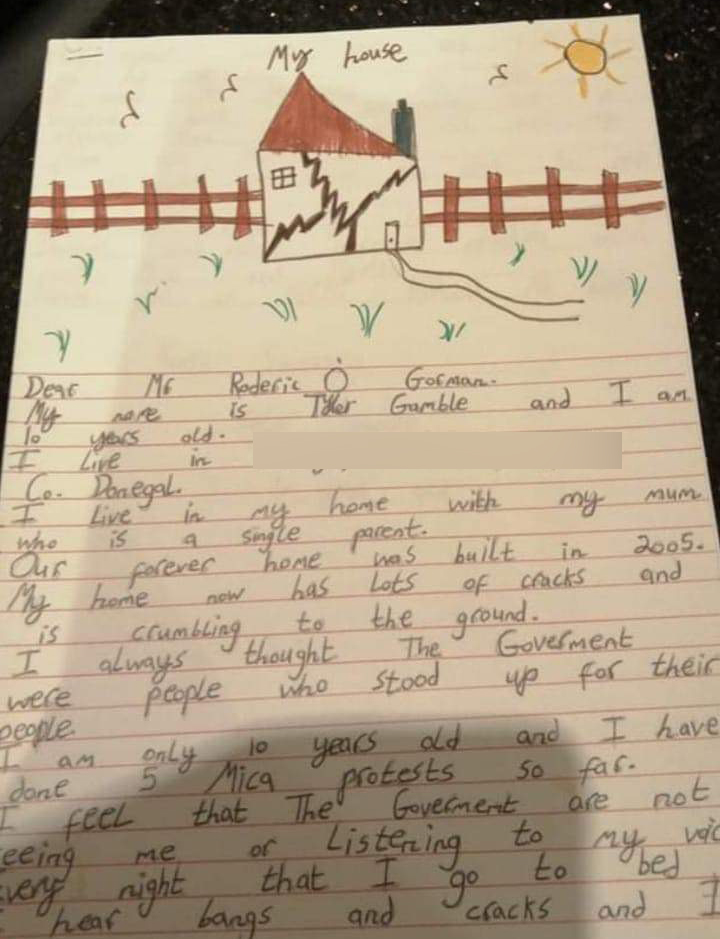 My house
Dear Mr Roderic Ó Gorman.
My name is Tyler Gamble and I am
10 years old.
I Live in
Co. Donegal.
I Live in my home with my mum
who is a single parent.
Our forever home was built in 2005.
My home now has Lots of cracks and
is crumbling to the ground.
I always thought The Goverment
were people who stood up for their
people.
I am only 10 years old and I have
done 5 Mica protests so far.
I feel that The Goverment are not
eeing me or Listening to my voic
very night that I go to bed
I hear bangs and cracks and I